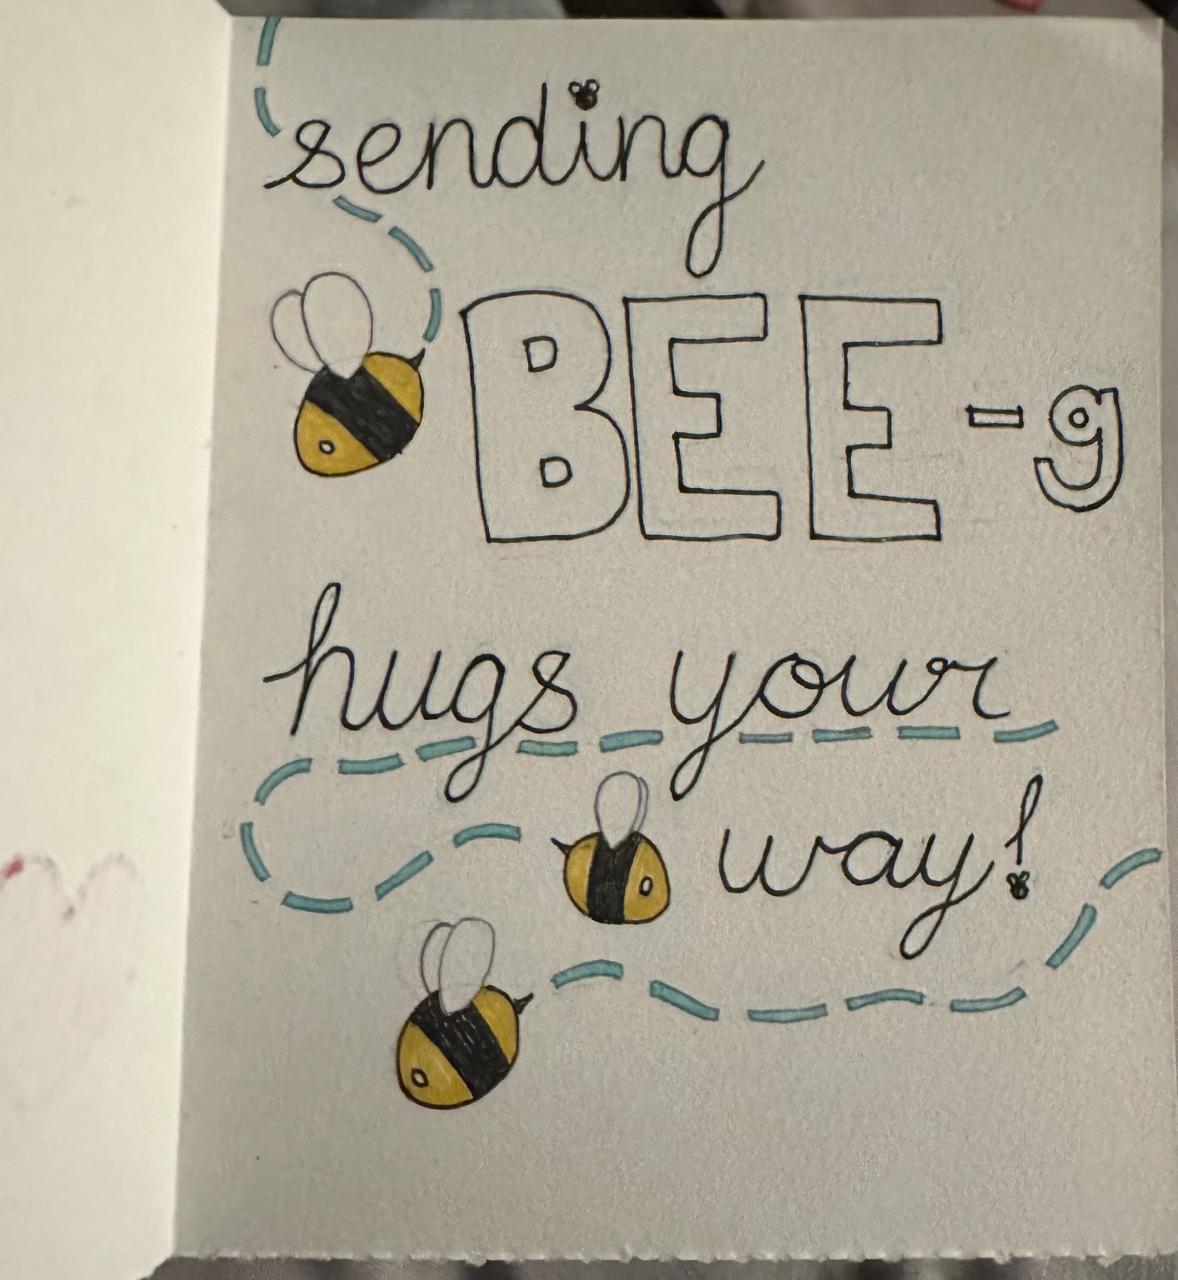 sending
BEE-g
hugs your
way!